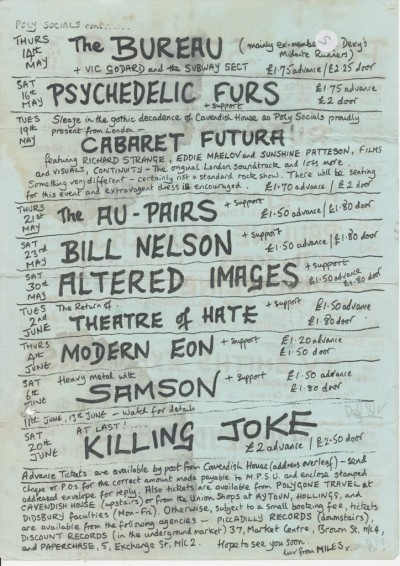 POLY SOCIALS cont......
THURS 14th MAY The BUREAU (mainly ex-members Dexy's Midnite Runners)
+ VIC GODARD and the SUBWAY SECT £1.75 advance / £2.25 door
SAT 16th MAY PSYCHEDELIC FURS + support £1.75 advance £2 door
TUES 19th MAY Sleaze in the gothic decadence of Cavendish House as Poly Socials proudly
present from London —
CABARET FUTURA!
featuring RICHARD STRANGE, EDDIE MAELOV and SUNSHINE PATTESON, FILMS
and VISUALS, CONTINUITY - The original London soundtrack and lots more.
Something very different - certainly not a standard rock show. There will be seating
for this event and extravagent dress is encouraged. £1.70 advance / £2 door
THURS 21st MAY The AU-PAIRS + support £1.50 advance / £1.80 door
SAT 23rd MAY BILL NELSON + support £1.50 advance / £1.80 door
SAT 30th MAY ALTERED IMAGES + support £1.50 advance £1.80 door
TUES 2nd JUNE The Return of... THEATRE of HATE + support £1.50 advance £1.80 door
THURS 4th JUNE MODERN EON + support £1.20 advance £1.50 door
SAT 6th JUNE Heavy metal with SAMSON + support £1.50 advance £1.80 door
11th JUNE, 13th JUNE - watch for details
SAT 20th JUNE AT LAST! ..... KILLING JOKE £2 advance / £2.50 door
Advance Tickets are available by post from Cavendish House (address overleaf) - send
cheque or P.O.s for the correct amount made payable to M.P.S.U. and enclose stamped
addressed envelope for reply. Also tickets are available from POLYGONE TRAVEL at
CAVENDISH HOUSE (upstairs) or from the Union Shops at AYTOUN, HOLLINGS, and
DIDSBURY faculties (Mon-Fri). Otherwise, subject to a small booking fee, tickets
are available from the following agencies - PICCADILLY RECORDS (downstairs),
DISCOUNT RECORDS (in the underground market) 37, Market Centre, Brown St, M/c 4,
and PAPERCHASE, 5, Exchange St. M/C 2. Hope to see you soon
luv from MILES x